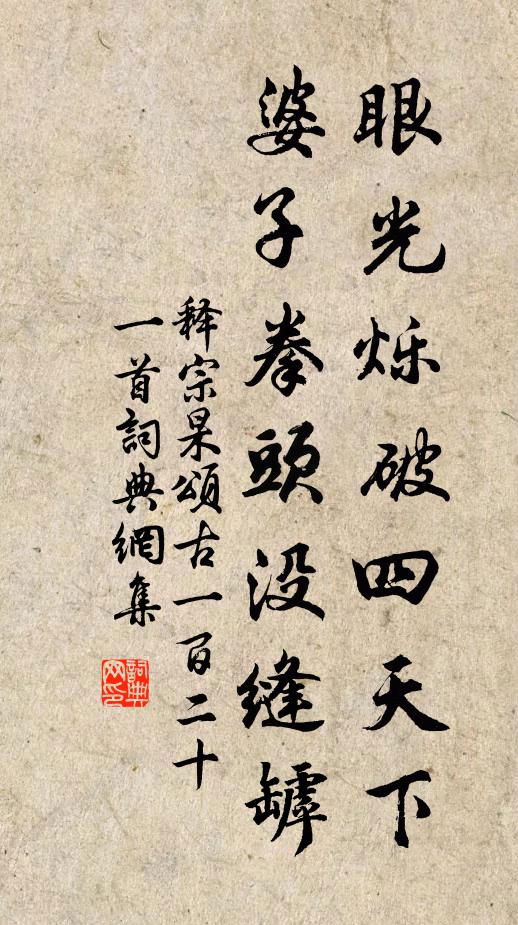 眼光烁破四天下
婆子拳頭没缝罅
释宗杲頌古一百二十
一首詞典網集
詞典
网印